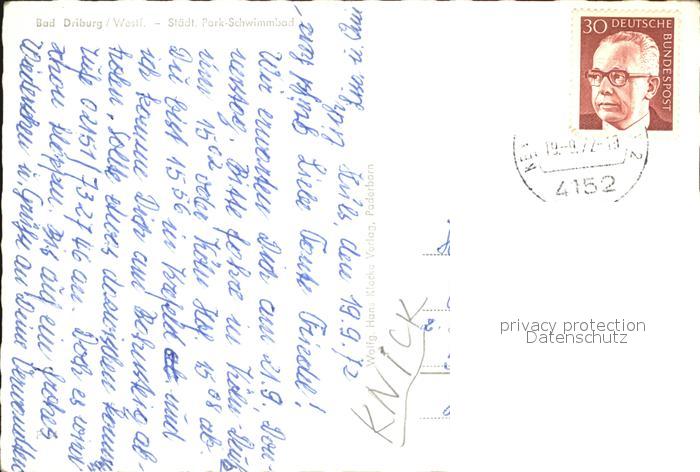 Bad Driburg / Westf. – Städt. Park-Schwimmbad
30 DEUTSCHE BUNDESPOST
19.-9.72-13
4152
Wolfg. Hans Klocke Verlag, Paderborn
KNICK
privacy protection
Datenschutz
Hüls, den 19.9.72
Liebe Tante Friedel!
Wir erwarten Dich am 21.9., Don-
nerstag. Bitte fahre in Köln-Deutz
um 15 02 oder Köln Hbf 15 08 ab.
Du bist 15 56 in Krefeld und
ich komme Dich am Bahnsteig ab-
holen. Sollte etwas dazwischen kommen
rufe 02151 732746 an. Doch es wird
schon klappen. Bis auf ein frohes
Wiedersehen u. Grüße an Deine Verwandten